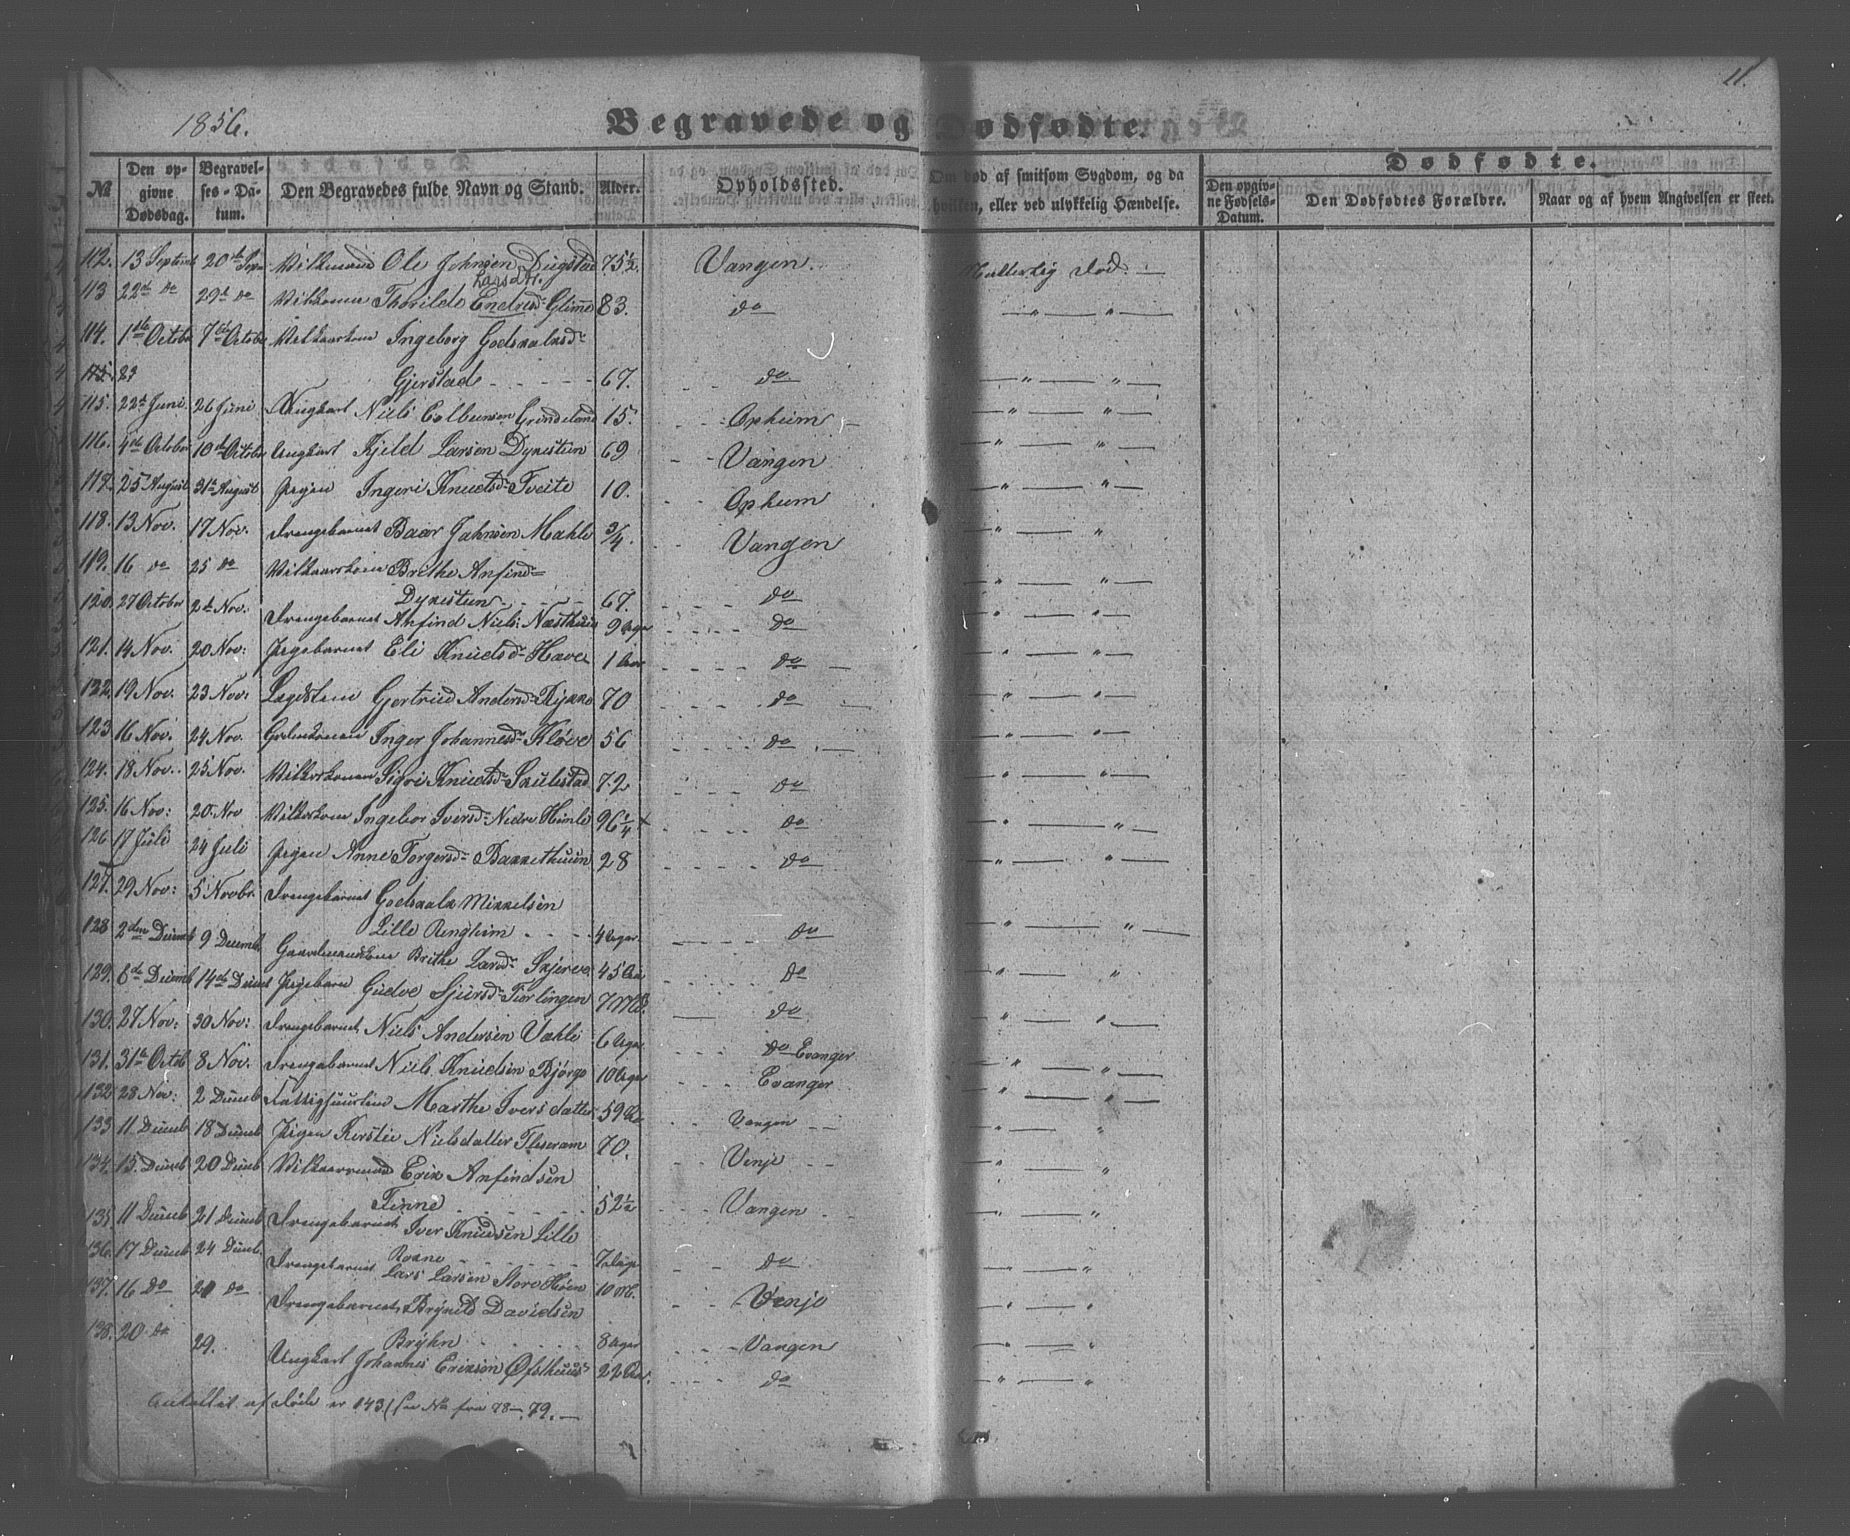 11.
1856.
Begravede og Dødfødte.
№
Den opgivne Dødsdag.
Begravelses-Datum.
Den Begravedes fulde Navn og Stand.
Alder.
Opholdssted.
Om død af smitsom Sygdom, og da hvilken, eller ved ulykkelig Hændelse.
Dødfødte.
Den opgivne Fødsels-Datum.
Den Dødfødtes Forældre.
Naar og af hvem Angivelsen er skeet.
112. 13 Septemb 20de Sept Vilkmand Ole Johnsen Dugstad 75½. Vangen. Naturlig Død. —
Larsdtr.
113 22de do 29de do Vilkona Thorilde Endresd. Glimme 83. do — " — " —
114. 1ste Octobr 7de Octobr Vilkaarskone Ingeborg Godskalksdr
Gjerstad 67. do — " — " —
115. 22de Juni 26 Juni Ungkarl Niels Colbensen Grindeland 15. Opheim — " — " —
116. 4de October 10de October Ungkarl Kjeld Larsen Dyresteen 69 Vangen — " — " —
117. 25 August 31te August Pigen Ingeri Knudsdr Tveite 10. Opheim — " — " —
118. 13 Nov. 17 Nov. Drengebarnet Baar Johnsen Mæhle ¾. Vangen — " — "
119. 16 do 25 do Vilkaarskone Brithe Anfind=
Dyresteen 67. do — " — " —
120. 27 October 2de Nov. Drengebarnet Anfind Niels: Næsthuus 9 Uger do " — " —
121. 14 Nov. 20 Nov: Pigebarnet Eli Knudsdr Have 1 Aar do — " — " —
122. 19 Nov. 23 Nov: Lægdslem Gjertrud Andersd. Rykke 70 do " — " —
123 16 Nov. 24 Nov. Gaardkonen Inger Johannesdr Kløve 56 do — " — " —
124. 18 Nov. 25 Nov. Vilkorskonen Sigri Knudsdr Skulestad 72 do — " — " —
125. 16 Nov: 20. Nov Vilkorskone Ingebor Iversdr Nedre Himle 96¼ do — " — " —
126 17 Juli 24 Juli Pigen Anne Torgersdr Bakkethuun 28 do — " — " —
127. 29 Nov: 5 Novbr. Drengebarnet Godskalk Mikkelsen
Lille Ringheim 4 Uger. do " — " —
128 2den Decemb 9 Decemb. Gaardmandskone Brithe Larsdr Skjerve 45 Aar do " — "
129. 6de Decemb 14de Decemb Pigebarn Gudve Sjursdr Tørlingen 7 Md. do " — " —
130. 27 Nov: 30 Nov: Drengebarnet Niels Andersen Væhle 6 Uger do Evanger " — " —
131. 31te Octob 8 Nov. Drengebarnet Niels Knudsen Bjørge 10 Uger Evanger " — " —
132 28 Nov: 2 Decemb Fattighuuslem Marthe Iversdatter 59 Aar Vangen — " — "
133 11 Decemb 18 Decemb Pigen Kerstie Nielsdatter Fleseram 70. Vinje — " — "
134. 15 Decemb 20 Decemb Vilkaarsmand Erik Anfindsen
Finne 52½ Vangen — " — "
135. 11 Decemb 21 Decemb Drengebarnet Iver Knudsen Lille
Rokne 7 Dage do — " — "
136. 17 Decemb 24 Decemb. Drengebarnet Lars Larsen Store Høen 10 M. Vinje — " — "
137. 16 do 21 do Drengebarnet Brynild Davidsen
Bryhn 8 Uger Vangen — " — "
138. 20 do 29. Ungkarl Johannes Eriksen Øfsthuus 22 Aar. do — " — "
Antallet af Døde er 143. (see No fra 78—79.—